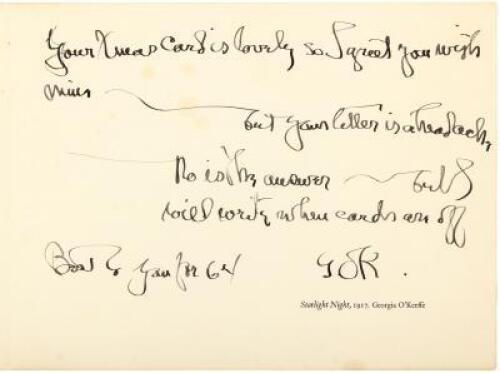 Your Xmas Card is lovely so I greet you with
mine
but your letter is a headache
No is the answer — but I
will write when cards are off
Best to you for 64 GOK.
Starlight Night, 1917. Georgia O'Keeffe